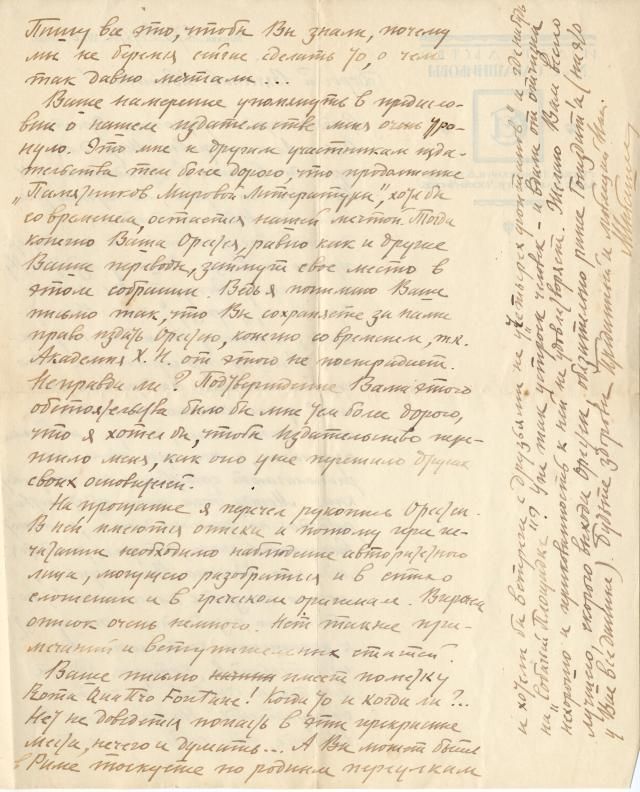 Пишу все это, чтобы Вы знали, почему
мы не беремся сейчас сделать то, о чем
так давно мечтали...
Ваше намерение упомянуть в предисло-
вии о нашем издательстве меня очень тро-
нуло. Это мне и другим участникам изда-
тельства тем более дорого, что продолжение
„Памятников Мировой Литературы", хотя бы
со временем, остается нашей мечтой. Тогда
конечно Ваша Орестея, равно как и другие
Ваши переводы, займут свое место в
этом собрании. Ведь я понимаю Ваше
письмо так, что Вы сохраняете за нами
право издать Орестею, конечно со временем, т.к.
Академия Х. Н. от этого не пострадает.
Неправда ли? Подтверждение Вами этого
обстоятельства было бы мне тем более дорого,
что я хотел бы, чтобы Издательство пере-
жило меня, как оно уже пережило других
своих основателей.
На прощание я перечел рукопись Орестеи.
В ней имеются описки и потому при пе-
чатании необходимо наблюдение авторитетного
лица, могущего разобраться и в стихо-
сложении и в греческом оригинале. Впрочем
описок очень немного. Нет также при-
мечаний и вступительных статей.
Ваше письмо имеет пометку
Quattro Fontane! Когда то и когда ли?..
Нет не доведется попасть в эти прекрасные
места, нечего и думать... А Вы может быть
в Риме тоскуете по родным переулкам
и хотели бы встречи с друзьями на „четырех фонтанах" и где нибудь
на „Собачьей Площадке"? Уж так устроен человек - и вдали от отчизны
некоторое и привязанность к ней не удовлетворяет. Желаю Вам всего
лучшего, скорого выхода Орестеи, обязательно ранее
у Вас все данные). Будьте здоровы. Преданный и любящий Вас